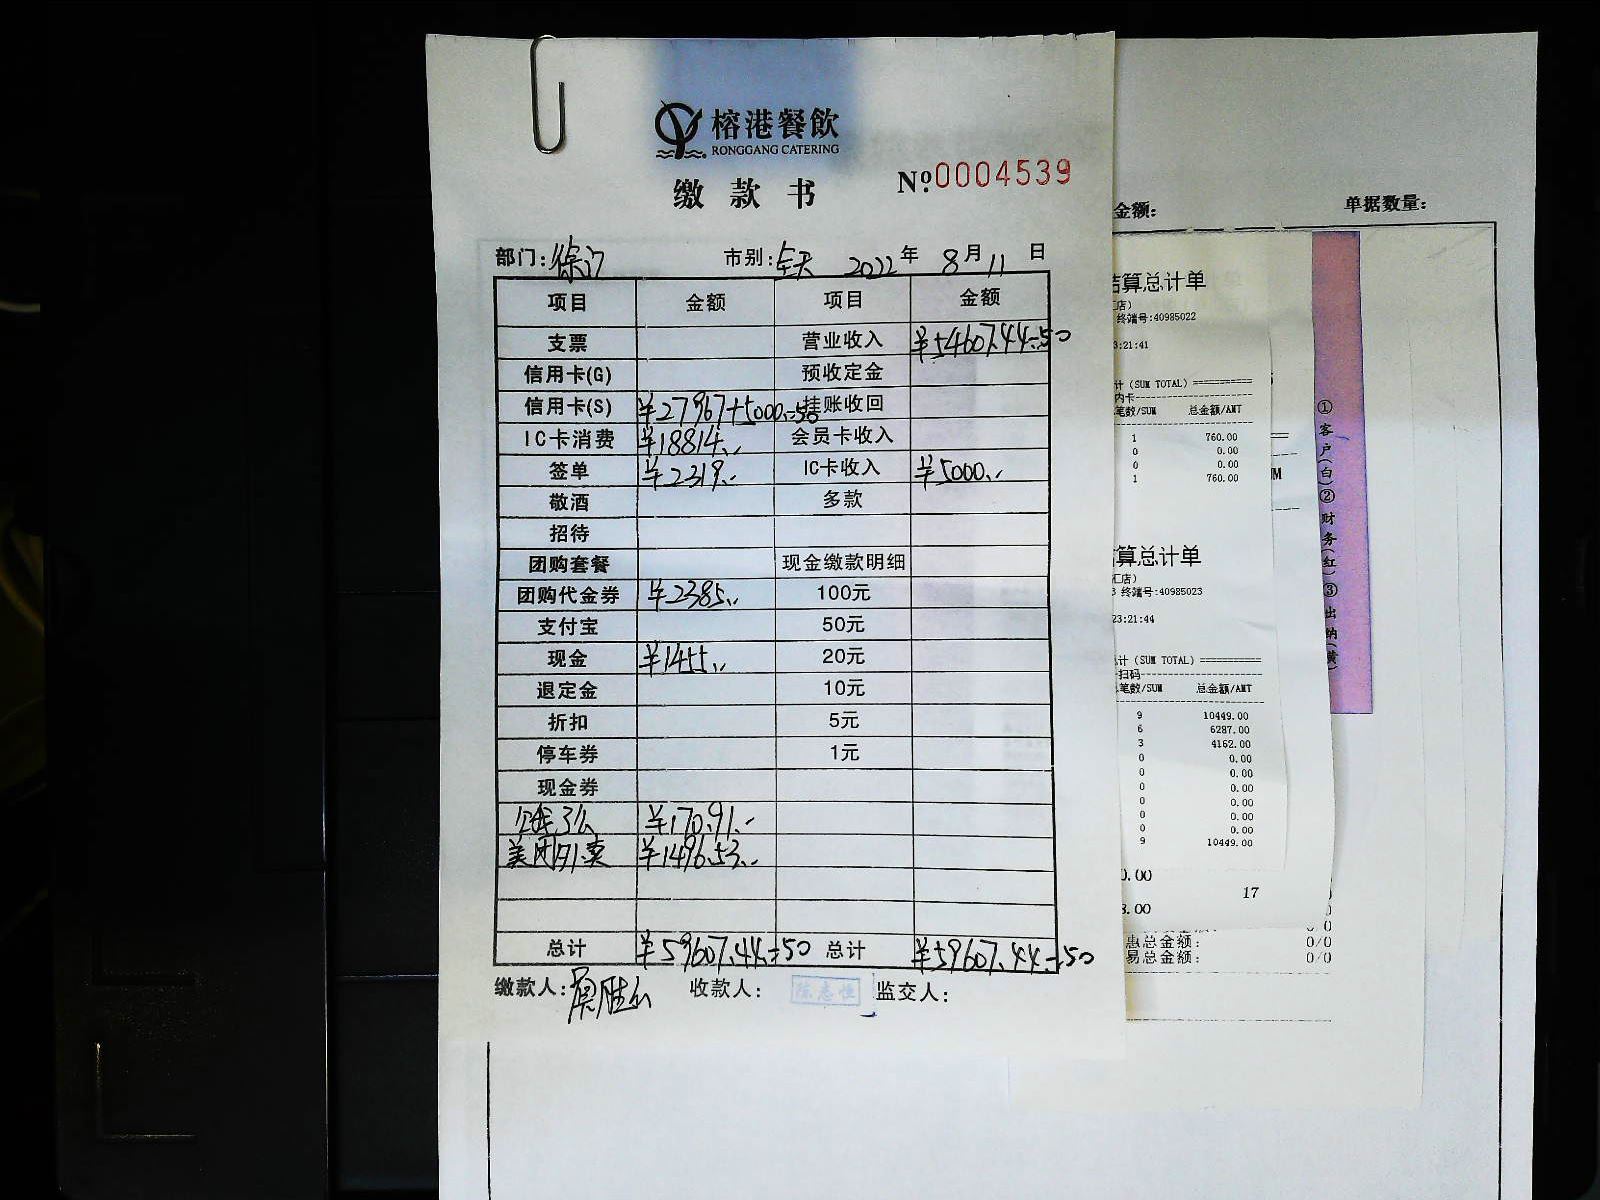 榕港餐飲
RONGGANG CATERING
缴款书
№:0004539
部门:徐汇 市别:全天 2022年 8月 11日
项目 金额 项目 金额
支票 营业收入 ¥54607.44=50
信用卡(G) 预收定金
信用卡(S) ¥27967+5000.=50 挂账收回
IC卡消费 ¥18814.- 会员卡收入
签单 ¥2319.- IC卡收入 ¥5000.-
敬酒 多款
招待
团购套餐 现金缴款明细
团购代金券 ¥2385.- 100元
支付宝 50元
现金 ¥1455.- 20元
退定金 10元
折扣 5元
停车券 1元
现金券
¥170.91.-
美团外卖 ¥1496.53.-
总计 ¥59607.44.=50 总计 ¥59607.44=50
缴款人: 收款人: 陈志恒 监交人:
金额: 单据数量:
结算总计单
汇店)
终端号:40985022
3:21:41
计(SUM TOTAL)===========
内卡
笔数/SUM 总金额/AMT
1 760.00
0 0.00
0 0.00
1 760.00
算总计单
汇店)
3 终端号:40985023
23:21:44
计(SUM TOTAL)===========
扫码
笔数/SUM 总金额/AMT
9 10449.00
6 6287.00
3 4162.00
0 0.00
0 0.00
0 0.00
0 0.00
0 0.00
0 0.00
9 10449.00
0.00
17
8.00
惠总金额: 0/0
易总金额: 0/0
①客户(白)②财务(红)③出纳(黄)